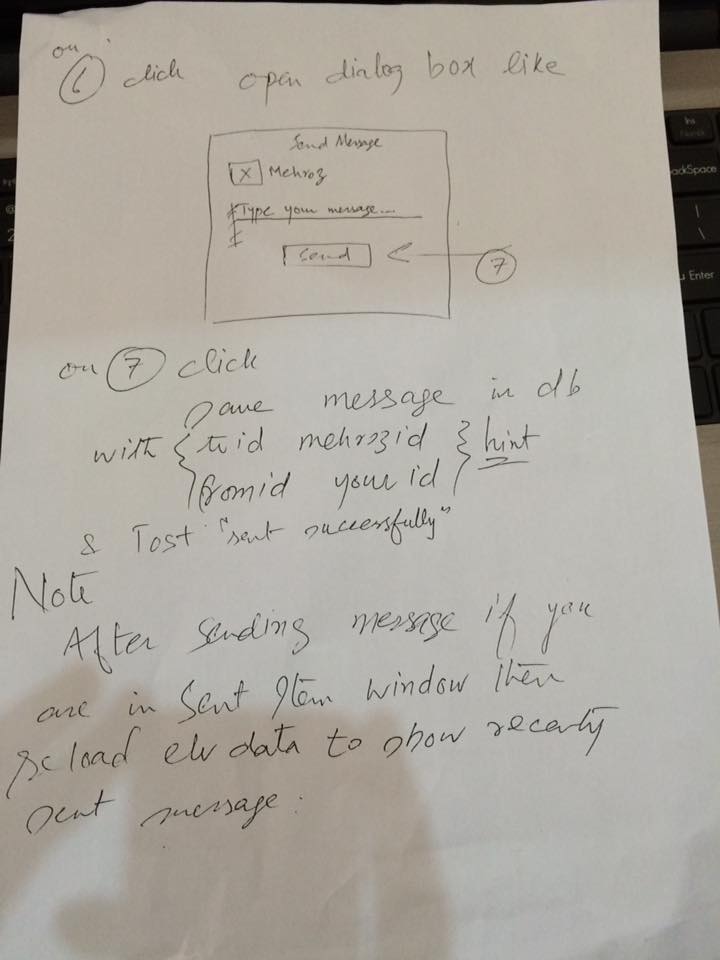 on
6 click open dialog box like
Send Message
X Mehroz
Type your message...
Send
7
on 7 click
save message in db
with { toid mehrozid } hint
fromid your id
& Tost "sent successfully"
Note
After sending message if you
are in Sent Item window then
reload elv data to show recently
sent message.
Ins
ackSpace
| \
Enter